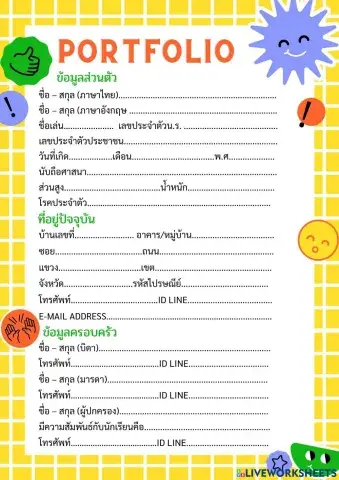 PORTFOLIO
ข้อมูลส่วนตัว
ชื่อ – สกุล (ภาษาไทย)..........................................................
ชื่อ – สกุล (ภาษาอังกฤษ ......................................................
ชื่อเล่น....................... เลขประจำตัวน.ร. ..................................
เลขประจำตัวประชาชน.........................................................
วันที่เกิด................เดือน..............................พ.ศ.................
นับถือศาสนา......................................................................
ส่วนสูง...................................น้ำหนัก................................
โรคประจำตัว.....................................................................
ที่อยู่ปัจจุบัน
บ้านเลขที่...................... อาคาร/หมู่บ้าน..............................
ซอย................................ถนน.........................................
แขวง..............................เขต...........................................
จังหวัด.........................รหัสไปรษณีย์................................
โทรศัพท์................................ID LINE...............................
E-MAIL ADDRESS............................................................
ข้อมูลครอบครัว
ชื่อ – สกุล (บิดา)...............................................................
โทรศัพท์................................ID LINE..............................
ชื่อ – สกุล (มารดา)...........................................................
โทรศัพท์................................ID LINE..............................
ชื่อ – สกุล (ผู้ปกครอง).......................................................
มีความสัมพันธ์กับนักเรียนคือ..............................................
โทรศัพท์................................ID LINE..............................
LIVEWORKSHEETS